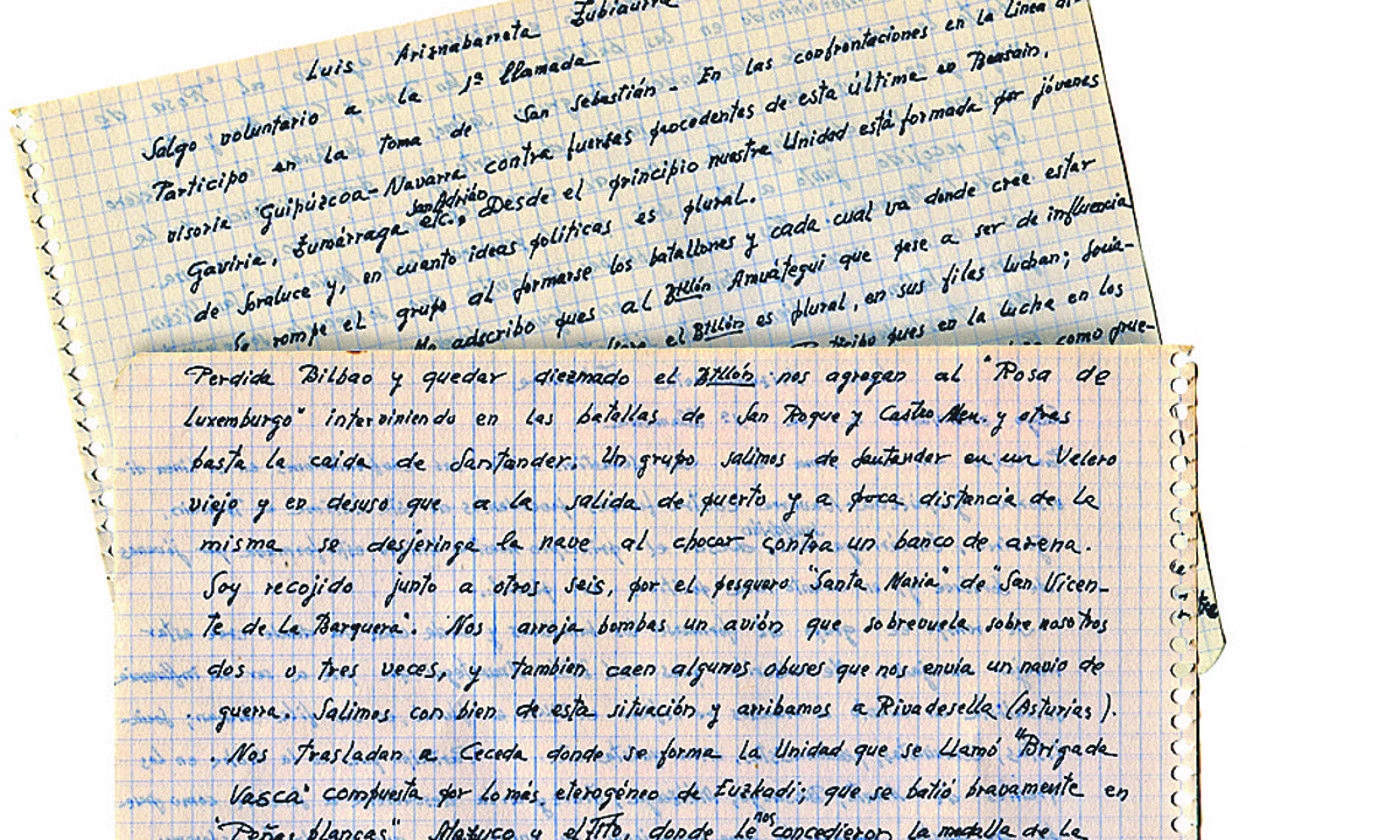 Luis Ariznabarreta Zubiaurre
Salgo voluntario a la 1ª llamada
Participo en la toma de San Sebastián - En las confrontaciones en la Linea di-
visoria Guipúzcoa-Navarra contra fuerzas procedentes de esta última en Beasain,
Gaviria, Zumárraga San Adrián etc., Desde el principio nuestra Unidad está formada por jóvenes
de Soraluce y, en cuanto ideas politicas es plural.
Se rompe el grupo al formarse los batallones y cada cual va donde cree estar
Me adscribo pues al Btllón Amuátegui que pese a ser de influencia
el Btllón es plural, en sus filas luchan; Socia-
pues en la lucha en los
como
Perdida Bilbao y quedar diezmado el Btllón nos agregan al "Rosa de
Luxemburgo" interviniendo en las batallas de San Roque y Castro Alen. y otras
hasta la caida de Santander. Un grupo salimos de Santander en un Velero
viejo y en desuso que a la salida de puerto y a poca distancia de la
misma se desjeringa la nave al chocar contra un banco de arena.
Soy recojido junto a otros seis, por el pesquero "Santa Maria" de "San Vicen-
te de la Barquera". Nos arroja bombas un avión que sobrevuela sobre nosotros
dos o tres veces, y tambien caen algunos obuses que nos envia un navio de
guerra. Salimos con bien de esta situación y arribamos a Rivadesella (Asturias).
Nos trasladan a Ceceda donde se forma la Unidad que se llamó "Brigada
Vasca" compuesta por lo más eterogéneo de Euzkadi; que se batió bravamente en
"Peñas blancas" Mazuco y el Fito, donde le nos concedieron la medalla de la